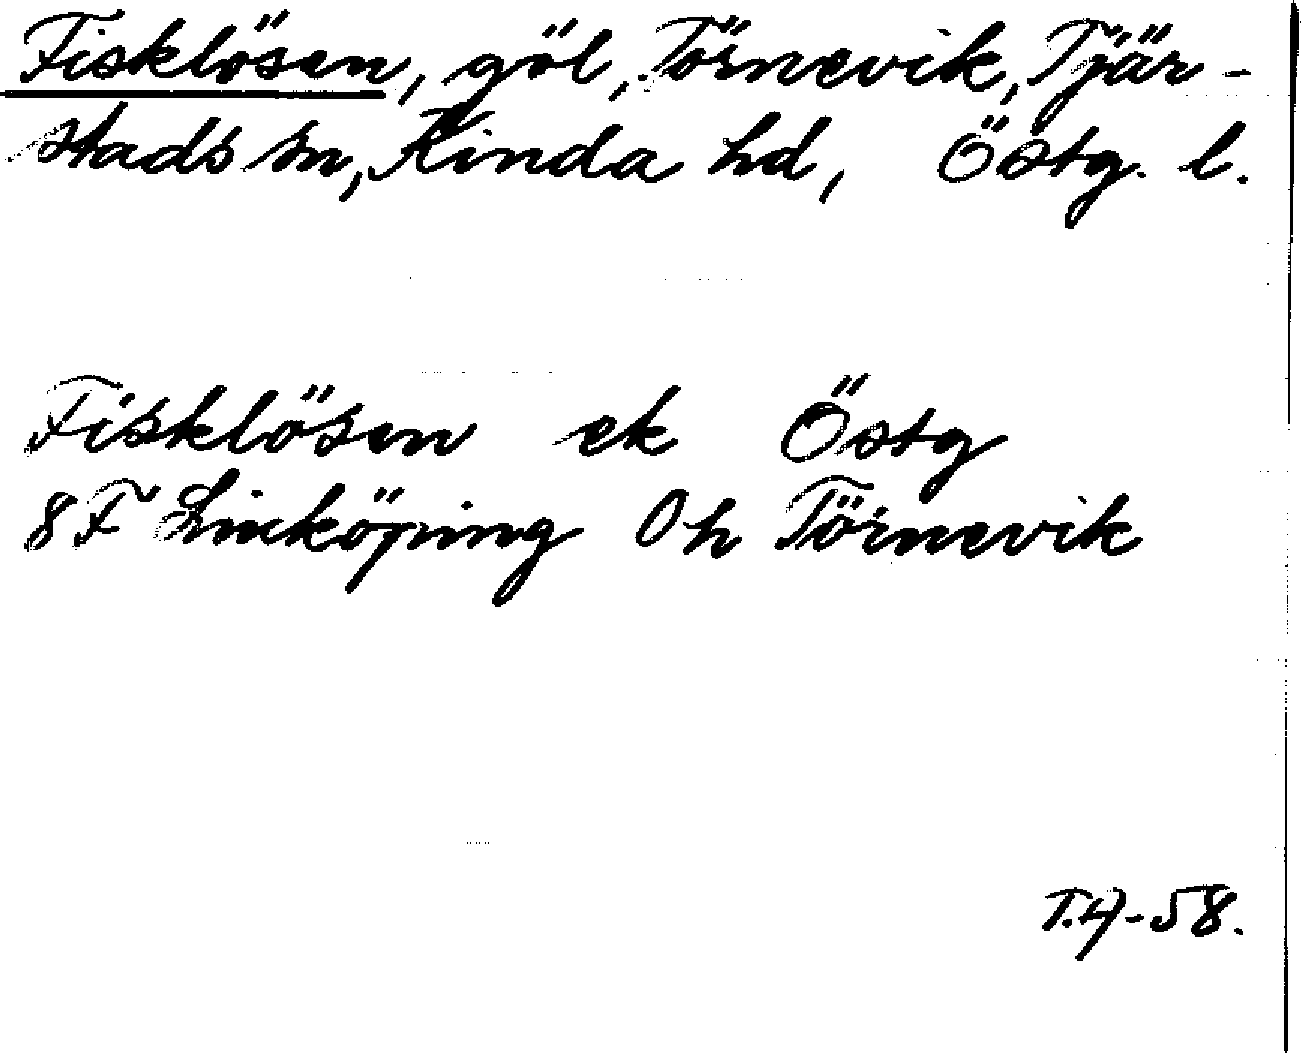 Fisklösen, göl, Törnevik, Tjär-
stads sn, Kinda hd, Östg. l.
Fisklösen ek Östg
8F Linköping 0h Törnevik
T.4-58.